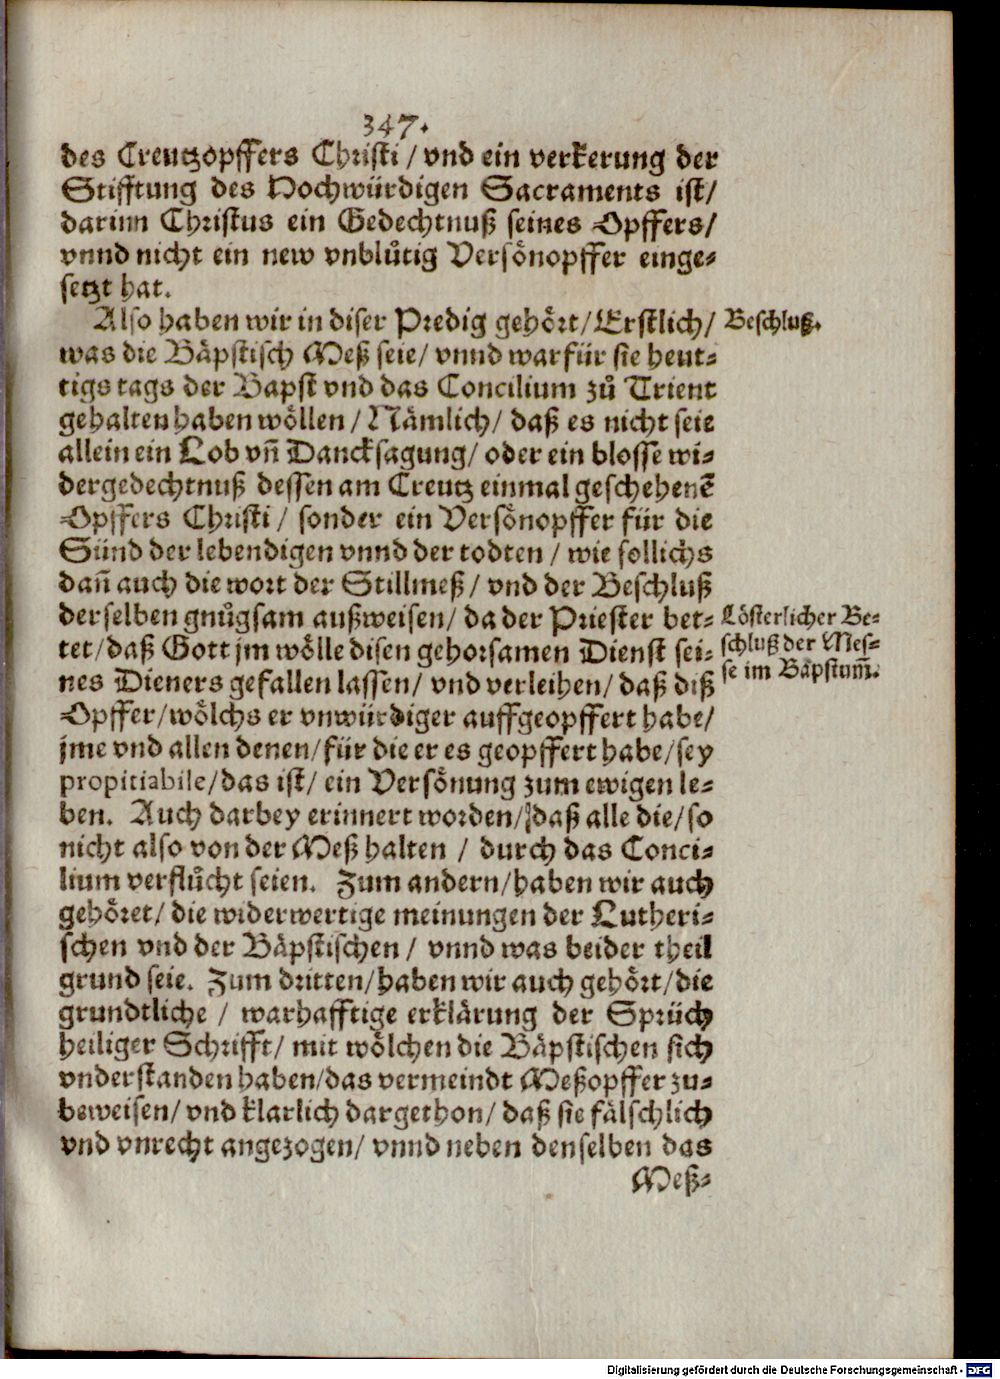 347.
des Creutzopffers Christi / vnd ein verkerung der
Stifftung des Hochwürdigen Sacraments ist/
darinn Christus ein Gedechtnuß seines Opffers/
vnnd nicht ein new vnblůtig Versönopffer einge-
setzt hat.
Also haben wir in diser Predig gehört/ Erstlich/
Beschluß.
was die Bäpstisch Meß seie/ vnnd warfür sie heut-
tigs tags der Bapst vnd das Concilium zů Trient
gehalten haben wöllen / Nämlich/ daß es nicht seie
allein ein Lob vñ Dancksagung/ oder ein blosse wi-
dergedechtnuß dessen am Creutz einmal geschehenē
Opffers Christi / sonder ein Versönopffer für die
Sünd der lebendigen vnnd der todten / wie sollichs
dañ auch die wort der Stillmeß / vnd der Beschluß
derselben gnůgsam außweisen/ da der Priester bet-
tet/daß Gott jm wölle disen gehorsamen Dienst sei-
nes Dieners gefallen lassen/ vnd verleihen/ daß diß
Lösterlicher Be-
schluß der Mes-
se im Bäpstum̃.
Opffer/wölchs er vnwürdiger auffgeopffert habe/
jme vnd allen denen/für die er es geopffert habe/sey
propitiabile/das ist/ ein Versönung zum ewigen le-
ben. Auch darbey erinnert worden/daß alle die/so
nicht also von der Meß halten / durch das Conci-
lium verflůcht seien. Zum andern/haben wir auch
gehöret/ die widerwertige meinungen der Lutheri-
schen vnd der Bäpstischen / vnnd was beider theil
grund seie. Zum dritten/haben wir auch gehört/die
grundtliche / warhafftige erklärung der Sprüch
heiliger Schrifft/ mit wölchen die Bäpstischen sich
vnderstanden haben/das vermeindt Meßopffer zu-
beweisen/ vnd klarlich dargethon/ daß sie fälschlich
vnd vnrecht angezogen/ vnnd neben denselben das
Meß-
Digitalisierung gefördert durch die Deutsche Forschungsgemeinschaft - DFG